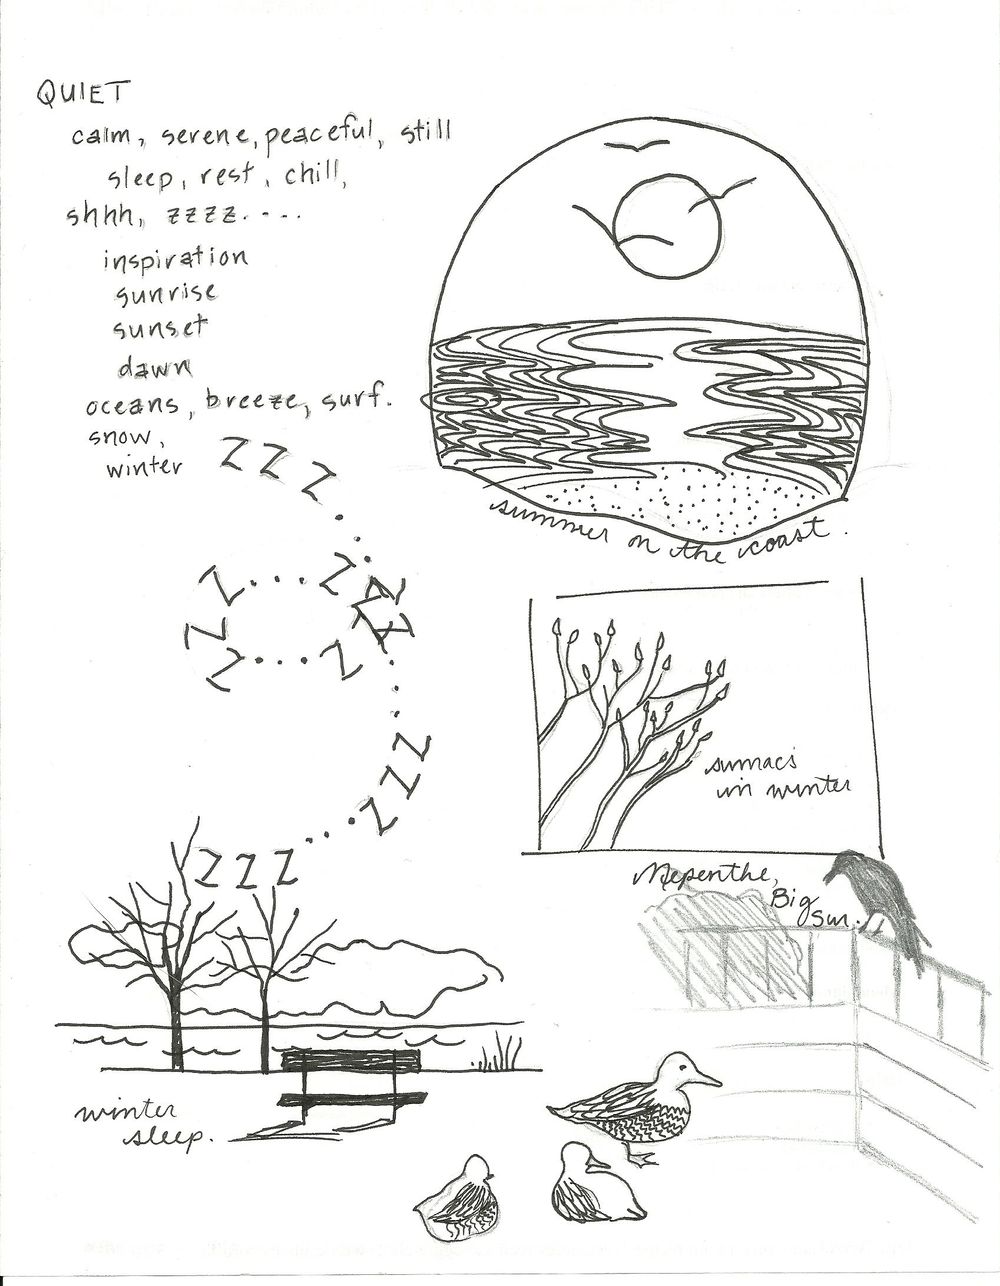 QUIET
calm, serene, peaceful, still
sleep, rest, chill,
shhh, zzzz.....
inspiration
sunrise
sunset
dawn
oceans, breeze, surf.
snow,
winter
ZZZ
summer on the coast.
Z...Z
Z
Z...Z
ZZZ
...
ZZZ
sumacs
in winter
Nepenthe,
Big
Sur.
winter
sleep.